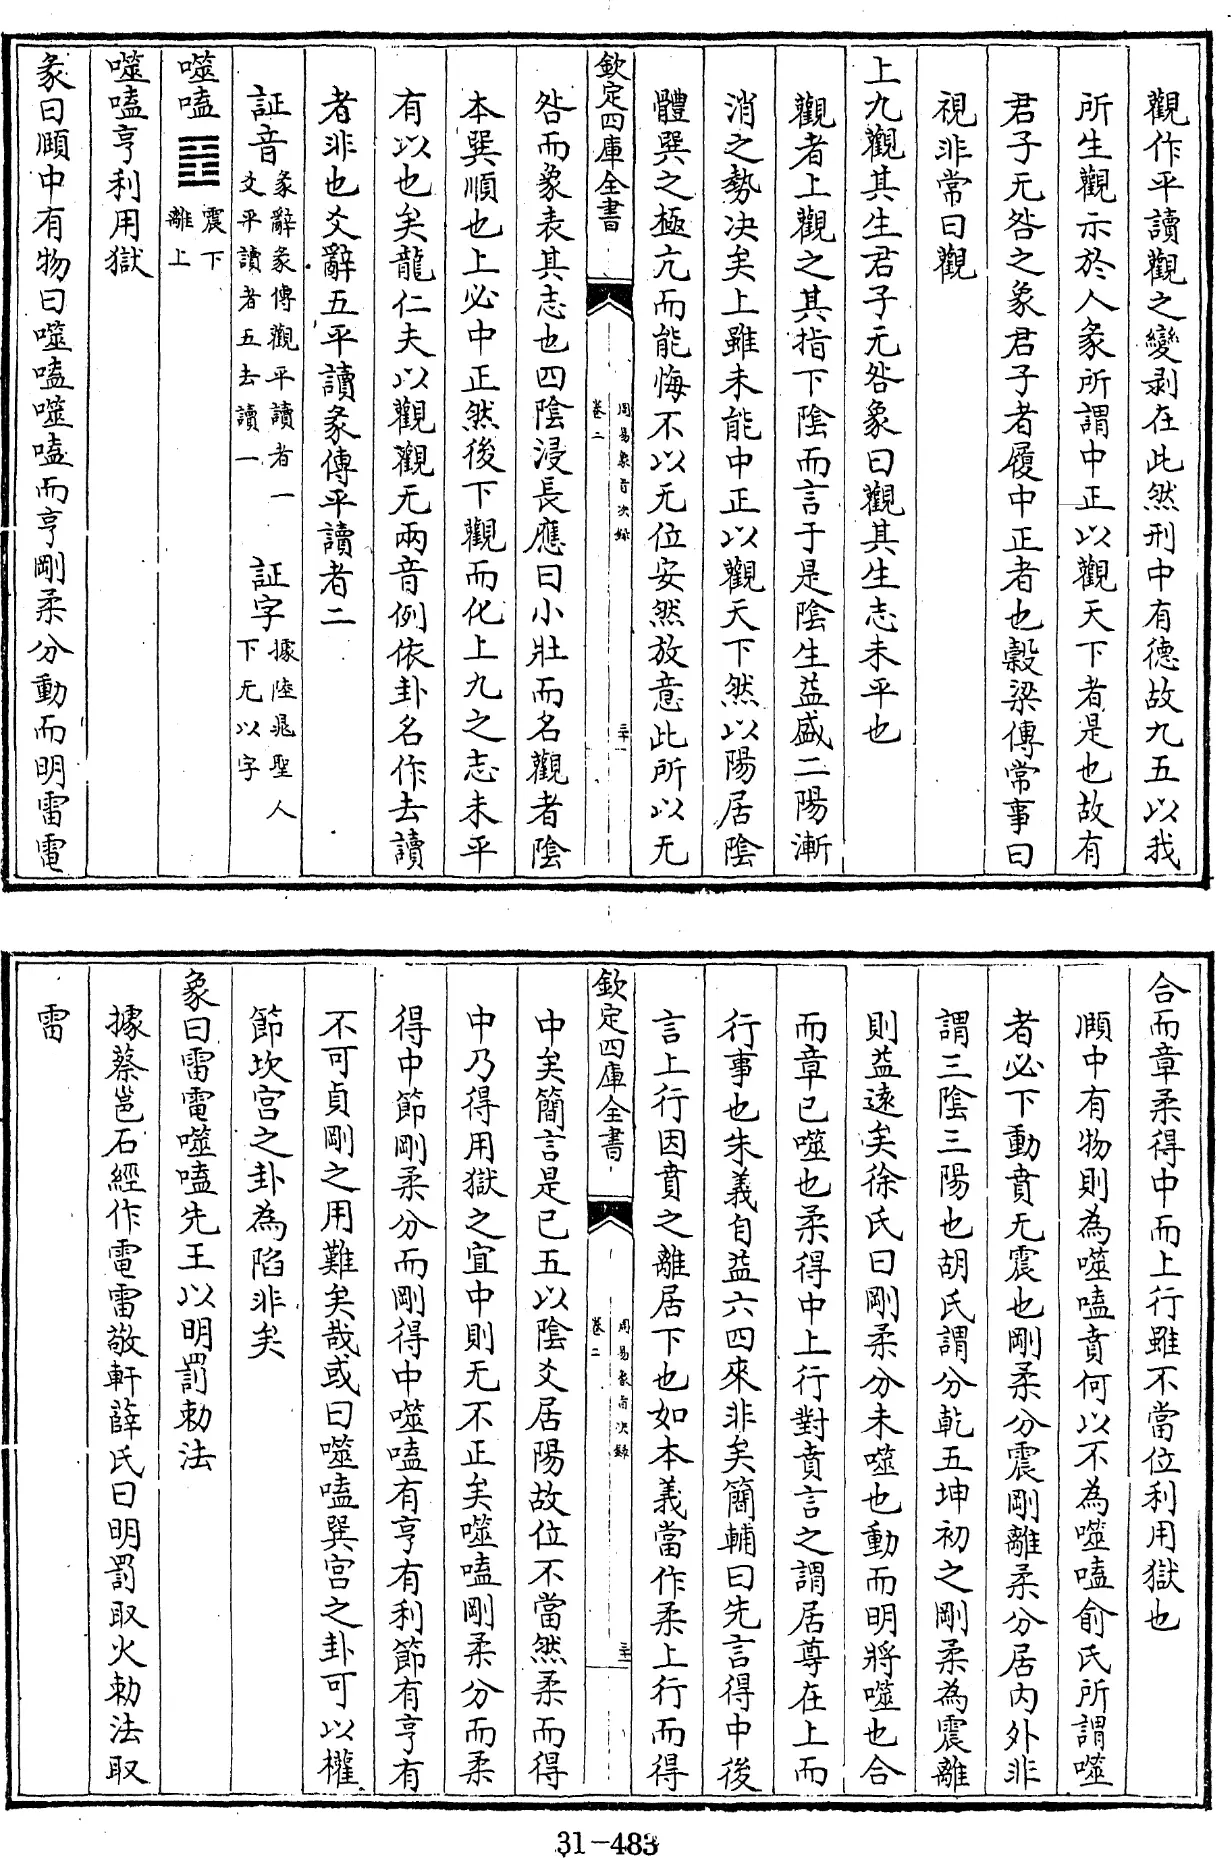 觀作平讀觀之變剥在此然刑中有德故九五以我
所生觀示於人彖所謂中正以觀天下者是也故有
君子无咎之象君子者履中正者也穀梁傳常事曰
視非常曰觀
上九觀其生君子无咎象曰觀其生志未平也
觀者上觀之其指下陰而言于是陰生益盛二陽漸
消之勢决矣上雖未能中正以觀天下然以陽居陰
體巽之極亢而能悔不以无位安然放意此所以无
欽定四庫全書
周易象旨决録
卷二
三十
咎而象表其志也四陰浸長應曰小壯而名觀者陰
本巽順也上必中正然後下觀而化上九之志未平
有以也矣龍仁夫以觀觀无兩音例依卦名作去讀
者非也爻辭五平讀彖傳平讀者二
証音彖辭象傳觀平讀者一
爻平讀者五去讀一
証字據陸晁聖人
下无以字
噬嗑䷔震下
離上
噬嗑亨利用獄
彖曰頤中有物曰噬嗑噬嗑而亨剛柔分動而明雷電
合而章柔得中而上行雖不當位利用獄也
頤中有物則為噬嗑賁何以不為噬嗑俞氏所謂噬
者必下動賁无震也剛柔分震剛離柔分居内外非
謂三陰三陽也胡氏謂分乾五坤初之剛柔為震離
則益遠矣徐氏曰剛柔分未噬也動而明將噬也合
而章已噬也柔得中上行對賁言之謂居尊在上而
行事也朱義自益六四來非矣簡輔曰先言得中後
言上行因賁之離居下也如本義當作柔上行而得
欽定四庫全書
周易象旨决録
卷二
三十一
中矣簡言是已五以陰爻居陽故位不當然柔而得
中乃得用獄之宜中則无不正矣噬嗑剛柔分而柔
得中節剛柔分而剛得中噬嗑有亨有利節有亨有
不可貞剛之用難矣哉或曰噬嗑巽宫之卦可以權
節坎宫之卦為陷非矣
象曰雷電噬嗑先王以明罰勅法
據蔡邕石經作電雷敬軒薛氏曰明罰取火勅法取
雷
31-483